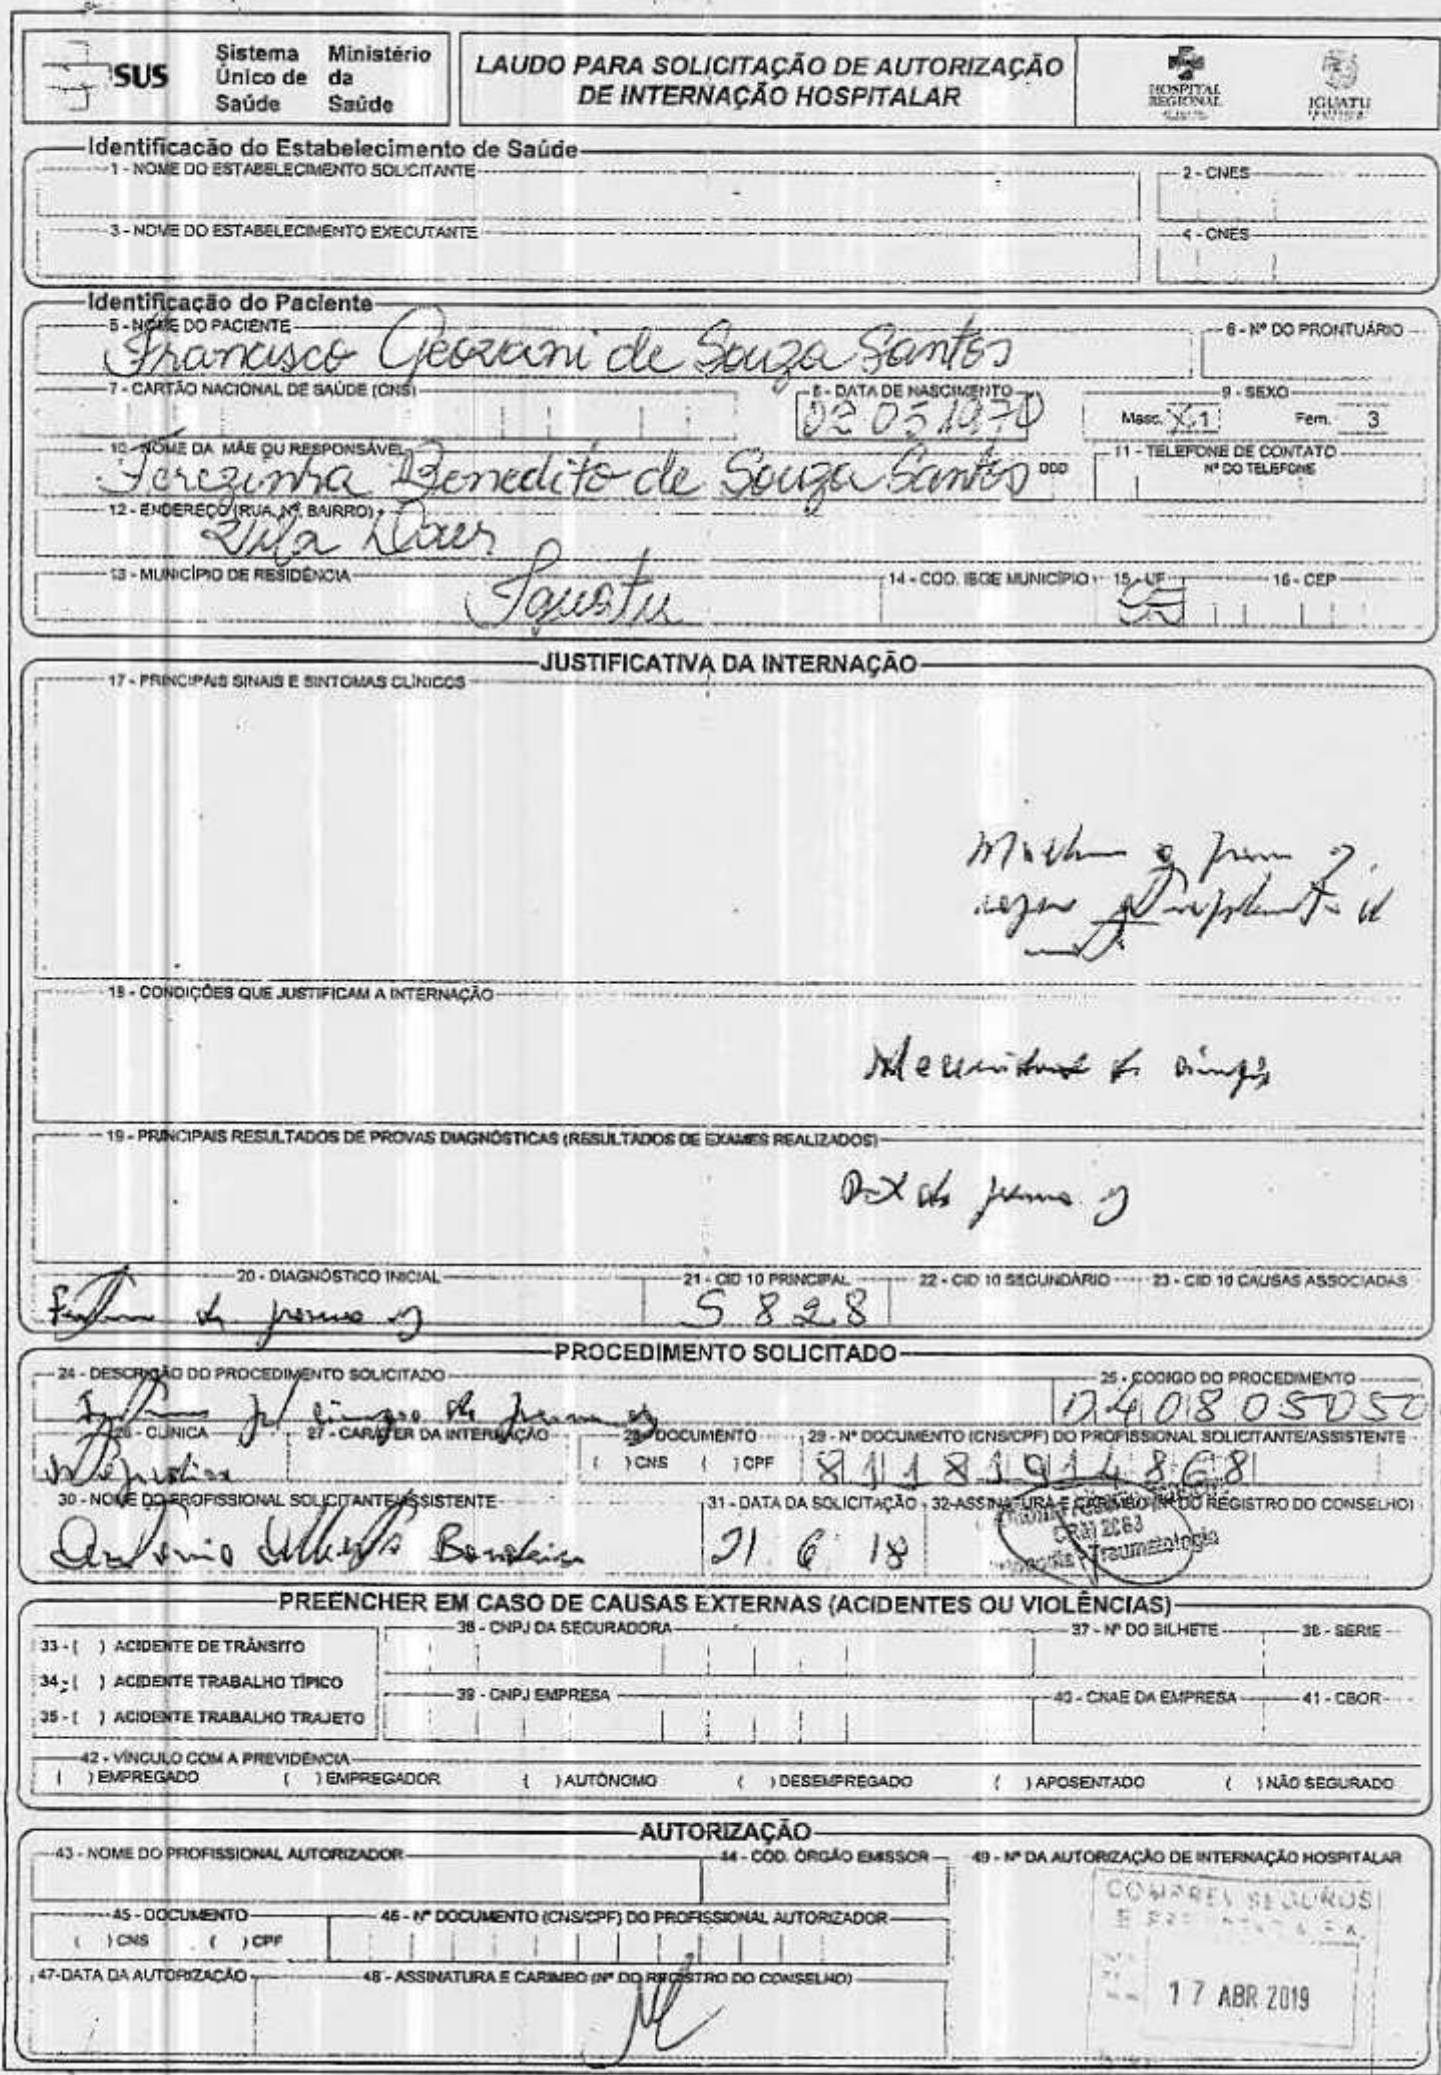 SUS
Sistema Único de Saúde
Ministério da Saúde
LAUDO PARA SOLICITAÇÃO DE AUTORIZAÇÃO
DE INTERNAÇÃO HOSPITALAR
HOSPITAL REGIONAL
IGUATU
Identificação do Estabelecimento de Saúde
1 - NOME DO ESTABELECIMENTO SOLICITANTE
2 - CNES
3 - NOME DO ESTABELECIMENTO EXECUTANTE
4 - CNES
Identificação do Paciente
5 - NOME DO PACIENTE
6 - Nº DO PRONTUÁRIO
Francisco Geovani de Souza Santos
7 - CARTÃO NACIONAL DE SAÚDE (CNS)
8 - DATA DE NASCIMENTO
9 - SEXO
02 05 1970
Masc. X 1 Fem. 3
10 - NOME DA MÃE OU RESPONSÁVEL
11 - TELEFONE DE CONTATO
DDD Nº DO TELEFONE
Terezinha Benedito de Souza Santos
12 - ENDEREÇO (RUA, Nº, BAIRRO)
Vila
13 - MUNICÍPIO DE RESIDÊNCIA
14 - COD. IBGE MUNICÍPIO
15 - UF
16 - CEP
Iguatu
JUSTIFICATIVA DA INTERNAÇÃO
17 - PRINCIPAIS SINAIS E SINTOMAS CLÍNICOS
18 - CONDIÇÕES QUE JUSTIFICAM A INTERNAÇÃO
19 - PRINCIPAIS RESULTADOS DE PROVAS DIAGNÓSTICAS (RESULTADOS DE EXAMES REALIZADOS)
20 - DIAGNÓSTICO INICIAL
21 - CID 10 PRINCIPAL
22 - CID 10 SECUNDÁRIO
23 - CID 10 CAUSAS ASSOCIADAS
S 8 2 8
PROCEDIMENTO SOLICITADO
24 - DESCRIÇÃO DO PROCEDIMENTO SOLICITADO
25 - CODIGO DO PROCEDIMENTO
040805050
26 - CLINICA
27 - CARATER DA INTERNAÇÃO
28 - DOCUMENTO
29 - Nº DOCUMENTO (CNS/CPF) DO PROFISSIONAL SOLICITANTE/ASSISTENTE
( ) CNS ( ) CPF
81181914868
30 - NOME DO PROFISSIONAL SOLICITANTE/ASSISTENTE
31 - DATA DA SOLICITAÇÃO
32-ASSINATURA E CARIMBO (Nº DO REGISTRO DO CONSELHO)
Antonio
21 6 18
Traumatologia
PREENCHER EM CASO DE CAUSAS EXTERNAS (ACIDENTES OU VIOLÊNCIAS)
33 - ( ) ACIDENTE DE TRÂNSITO
36 - CNPJ DA SEGURADORA
37 - Nº DO BILHETE
38 - SERIE
34 - ( ) ACIDENTE TRABALHO TÍPICO
39 - CNPJ EMPRESA
40 - CNAE DA EMPRESA
41 - CBOR
35 - ( ) ACIDENTE TRABALHO TRAJETO
42 - VÍNCULO COM A PREVIDÊNCIA
( ) EMPREGADO ( ) EMPREGADOR ( ) AUTÔNOMO ( ) DESEMPREGADO ( ) APOSENTADO ( ) NÃO SEGURADO
AUTORIZAÇÃO
43 - NOME DO PROFISSIONAL AUTORIZADOR
44 - COD. ÓRGÃO EMISSOR
49 - Nº DA AUTORIZAÇÃO DE INTERNAÇÃO HOSPITALAR
SEGUROS
45 - DOCUMENTO
46 - Nº DOCUMENTO (CNS/CPF) DO PROFISSIONAL AUTORIZADOR
( ) CNS ( ) CPF
47-DATA DA AUTORIZAÇÃO
48 - ASSINATURA E CARIMBO (Nº DO REGISTRO DO CONSELHO)
17 ABR 2019